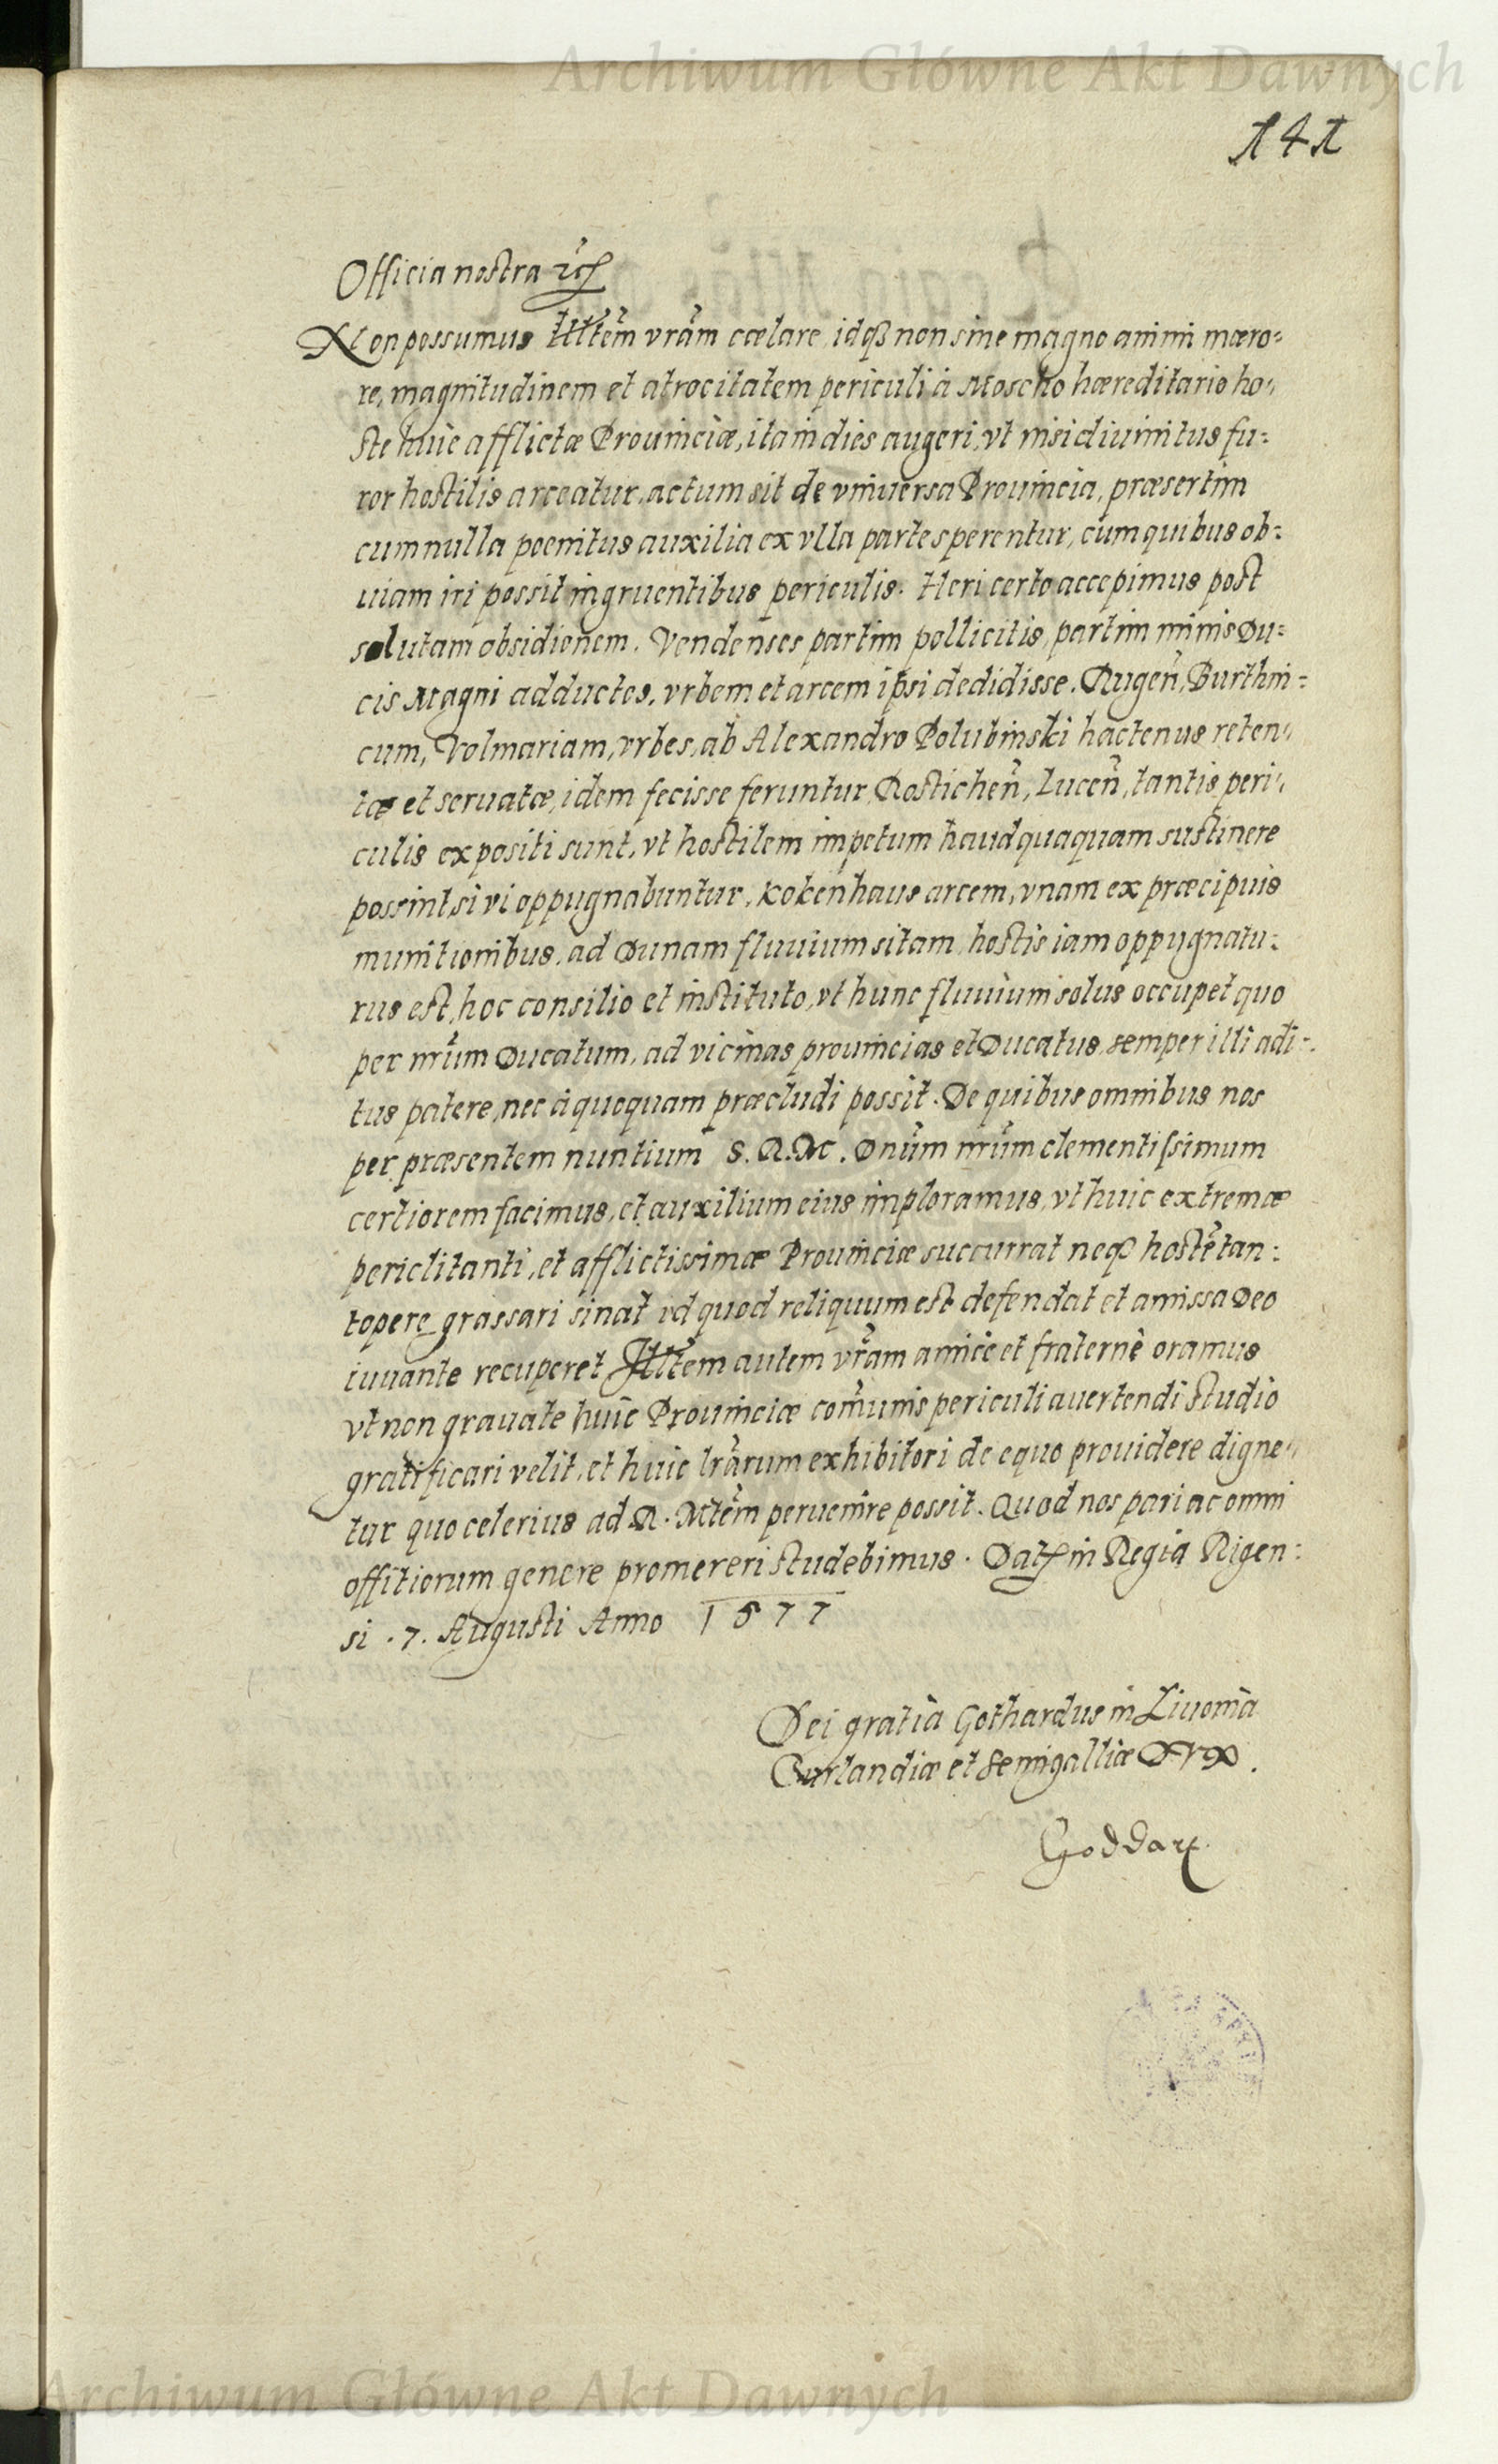 Archiwum Główne Akt Dawnych
141
Officia nostra etc
Non possumus Illtem vram cœlare, idq3 non sine magno animi mæro=
re, magnitudinem et atrocitatem periculi à Moscho hæreditario ho=
ste huic afflictæ Prouinciæ, ita in dies augeri, vt nisi diuinitus fu=
ror hostilis arceatur, actum sit de vniuersa Prouincia, præsertim
cum nulla poenitus auxilia ex vlla parte sperentur, cum quibus ob=
uiam iri possit ingruentibus periculis. Heri certo accepimus post
solutam obsidionem. Vendenses partim pollicitis, partim minis Du=
cis Magni adductos, vrbem et arcem ipsi dedidisse. Rugen, Burthni=
cum, Volmariam, vrbes, ab Alexandro Polubinski hactenus reten=
tæ et seruatæ, idem fecisse feruntur, Rostichen, Lucen, tantis peri=
culis expositi sunt, vt hostilem impetum haudquaquam sustinere
possint, si vi oppugnabuntur, Kokenhaus arcem, vnam ex præcipuis
munitionibus, ad Dunam fluuium sitam, hostis iam oppugnatu=
rus est, hoc consilio et instituto, vt hunc fluuium solus occupet quo
per nrum Ducatum, ad vicinas prouincias et Ducatus semper illi adi=
tus patere, nec à quoquam præcludi possit. De quibus omnibus nos
per præsentem nuntium S. R. M. Dnum nrum clementissimum
certiorem facimus, et auxilium eius imploramus, vt huic extremæ
periclitanti, et afflictissimæ Prouinciæ succurrat neq3 hostē tan=
topere grassari sinat id quod reliquum est defendat et amissa Deo
iuuante recuperet Illtem autem vram amicè et fraternè oramus
vt non grauate huic Prouinciæ comunis periculi auertendi studio
gratificari velit, et huic lrarum exhibitori de equo prouidere digne=
tur quo celerius ad R. Mtem peruenire possit. Quod nos pari ac omni
offitiorum genere promereri studebimus. Dat in Regia Rigen=
si .7. Augusti Anno 1577
Dei gratia Gothardus in Liuonia
Curlandiæ et Semigalliæ Dux.
Goddart
Archiwum Główne Akt Dawnych